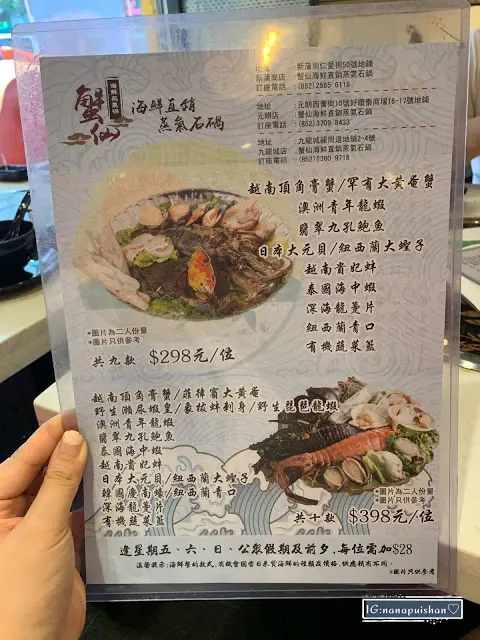 蟹仙
海鮮蒸氣石鍋
海鮮直銷
蒸氣石鍋
新蒲崗仁愛街50號地鋪
新蒲崗店 : 蟹仙海鮮直銷蒸氣石鍋
訂座電話 : (852)2565 6118
地址 : 元朗西菁街10號好順泰商場16-17號地鋪
元朗店 : 蟹仙海鮮直銷蒸氣石鍋
訂座電話 : (852)3709 8433
地址 : 九龍城龍崗道地鋪2-4號
九龍城店 : 蟹仙海鮮直銷蒸氣石鍋
訂座電話 : (852)2360 9718
越南頂角膏蟹/罕有大黃奄蟹
澳洲青年龍蝦
翡翠九孔鮑魚
日本大元貝/紐西蘭大蟶子
越南貴妃蚌
泰國海中蝦
深海龍躉片
紐西蘭青口
有機蔬菜籃
*圖片為二人份量
*圖片只供參考
共九款 $298元/位
越南頂角膏蟹/菲律賓大黃奄
野生瀨尿蝦皇/象拔蚌刺身/野生琵琶龍蝦
澳洲青年龍蝦
翡翠九孔鮑魚
泰國海中蝦
越南貴妃蚌
日本大元貝/紐西蘭大蟶子
韓國慶南蠔/紐西蘭青口
深海龍躉片
有機蔬菜籃
*圖片為二人份量
*圖片只供參考
共十款 $398元/位
逢星期五、六、日、公眾假期及前夕,每位需加$28
溫馨提示:海鮮餐的款式,有機會因當日來貨海鮮的種類及價格,供應稍有不同。
*圖片只供參考
IG:nanapuishan♡